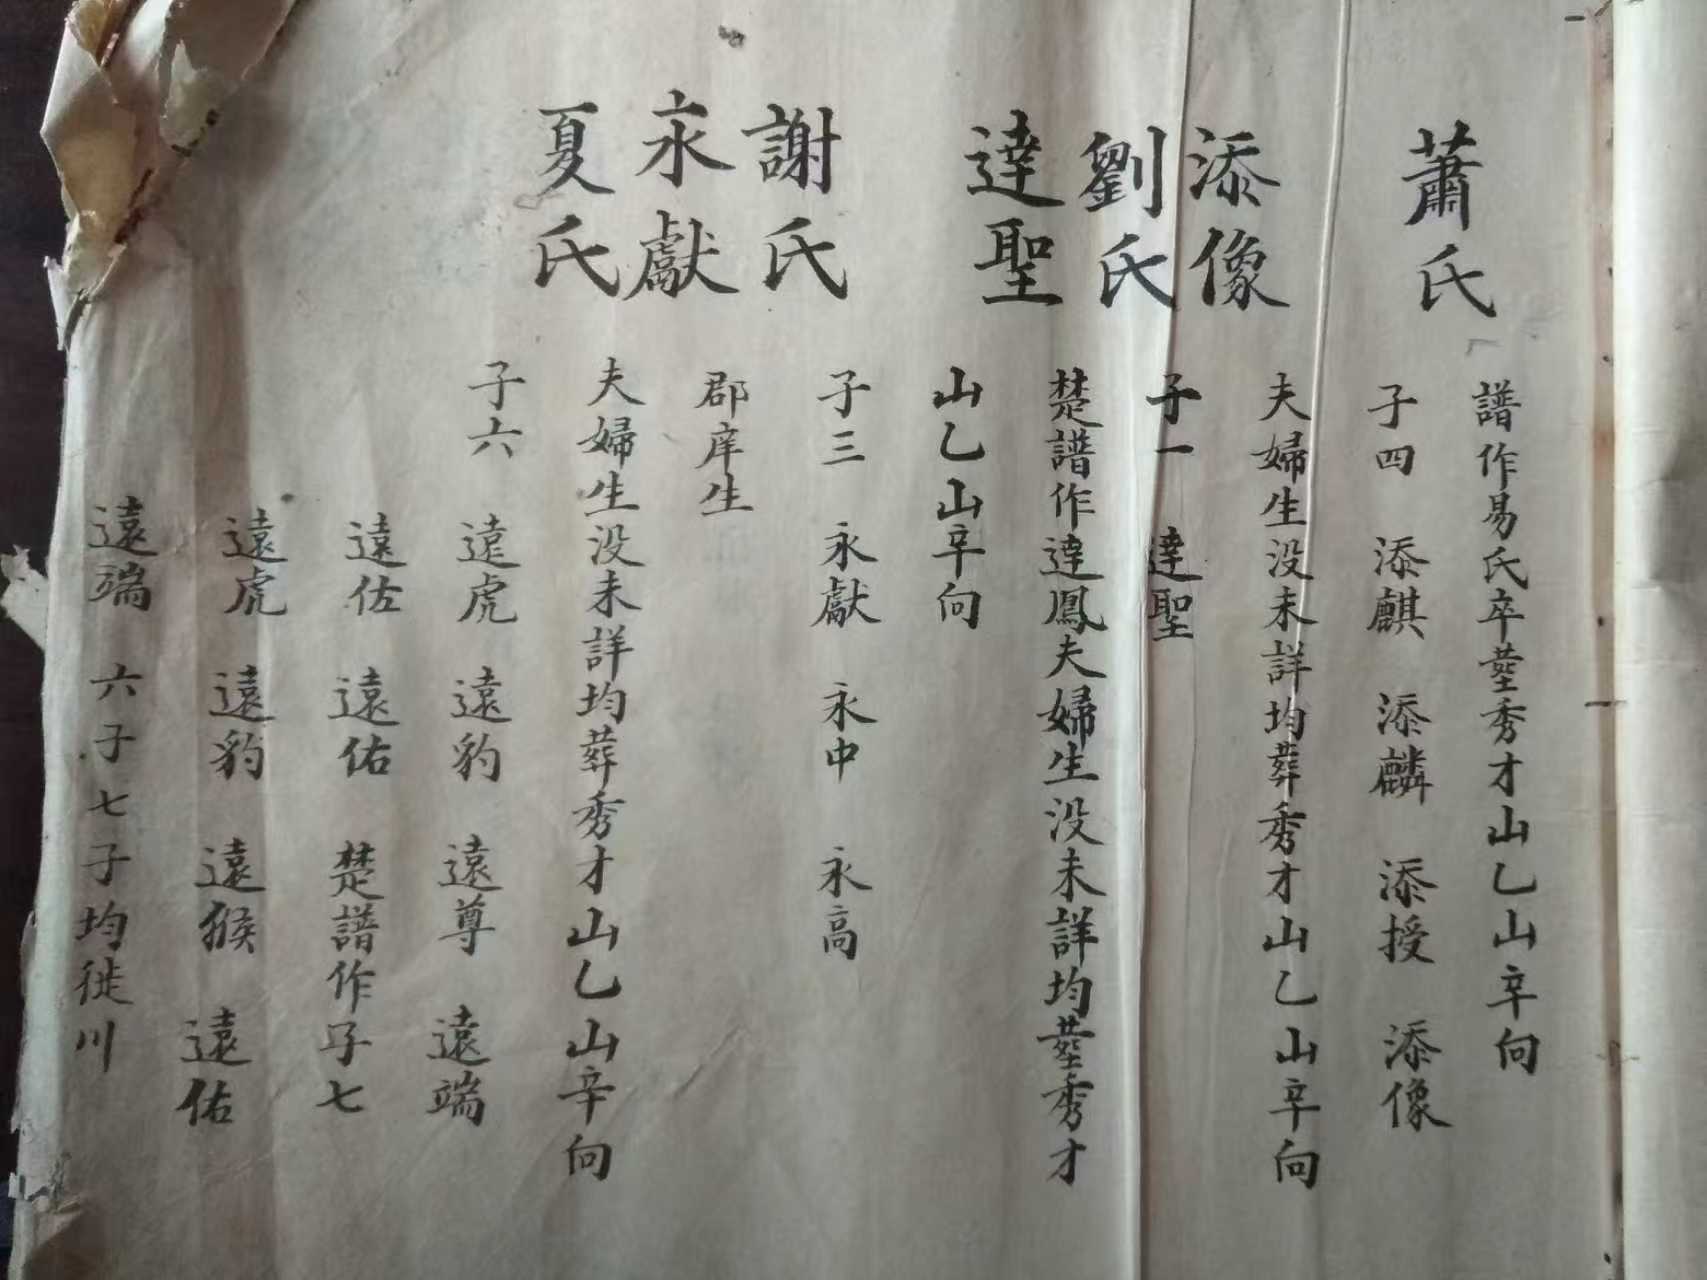 蕭氏
譜作易氏卒塟秀才山乙山辛向
子四 添麒 添麟 添授 添像
添像
夫婦生没未詳均葬秀才山乙山辛向
劉氏
子一 達聖
達聖
楚譜作達鳳夫婦生没未詳均塟秀才
山乙山辛向
謝氏
子三 永獻 永中 永高
永獻
郡庠生
夏氏
夫婦生没未詳均葬秀才山乙山辛向
子六 遠虎 遠豹 遠尊 遠端
遠佐 遠佑 楚譜作子七
遠虎 遠豹 遠猴 遠佑
遠端 六子七子均徙川